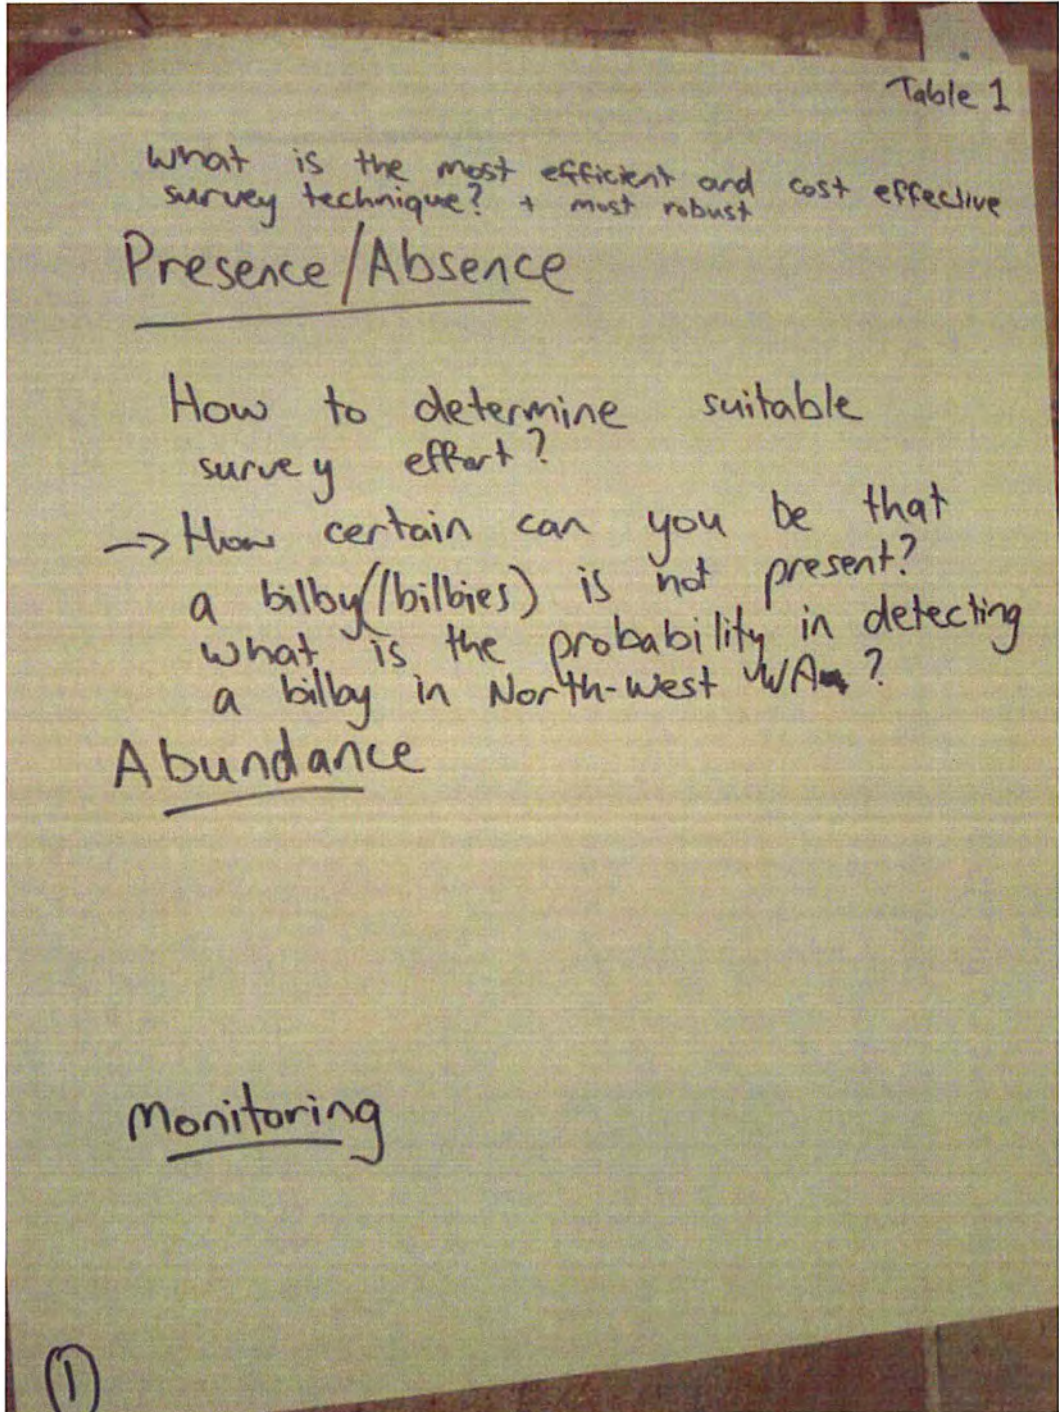 Table 1
what is the most efficient and cost effective
survey technique? + most robust
Presence/Absence
How to determine suitable
survey effort?
→ How certain can you be that
a bilby(/bilbies) is not present?
what is the probability in detecting
a bilby in North-West WA ?
Abundance
Monitoring
1